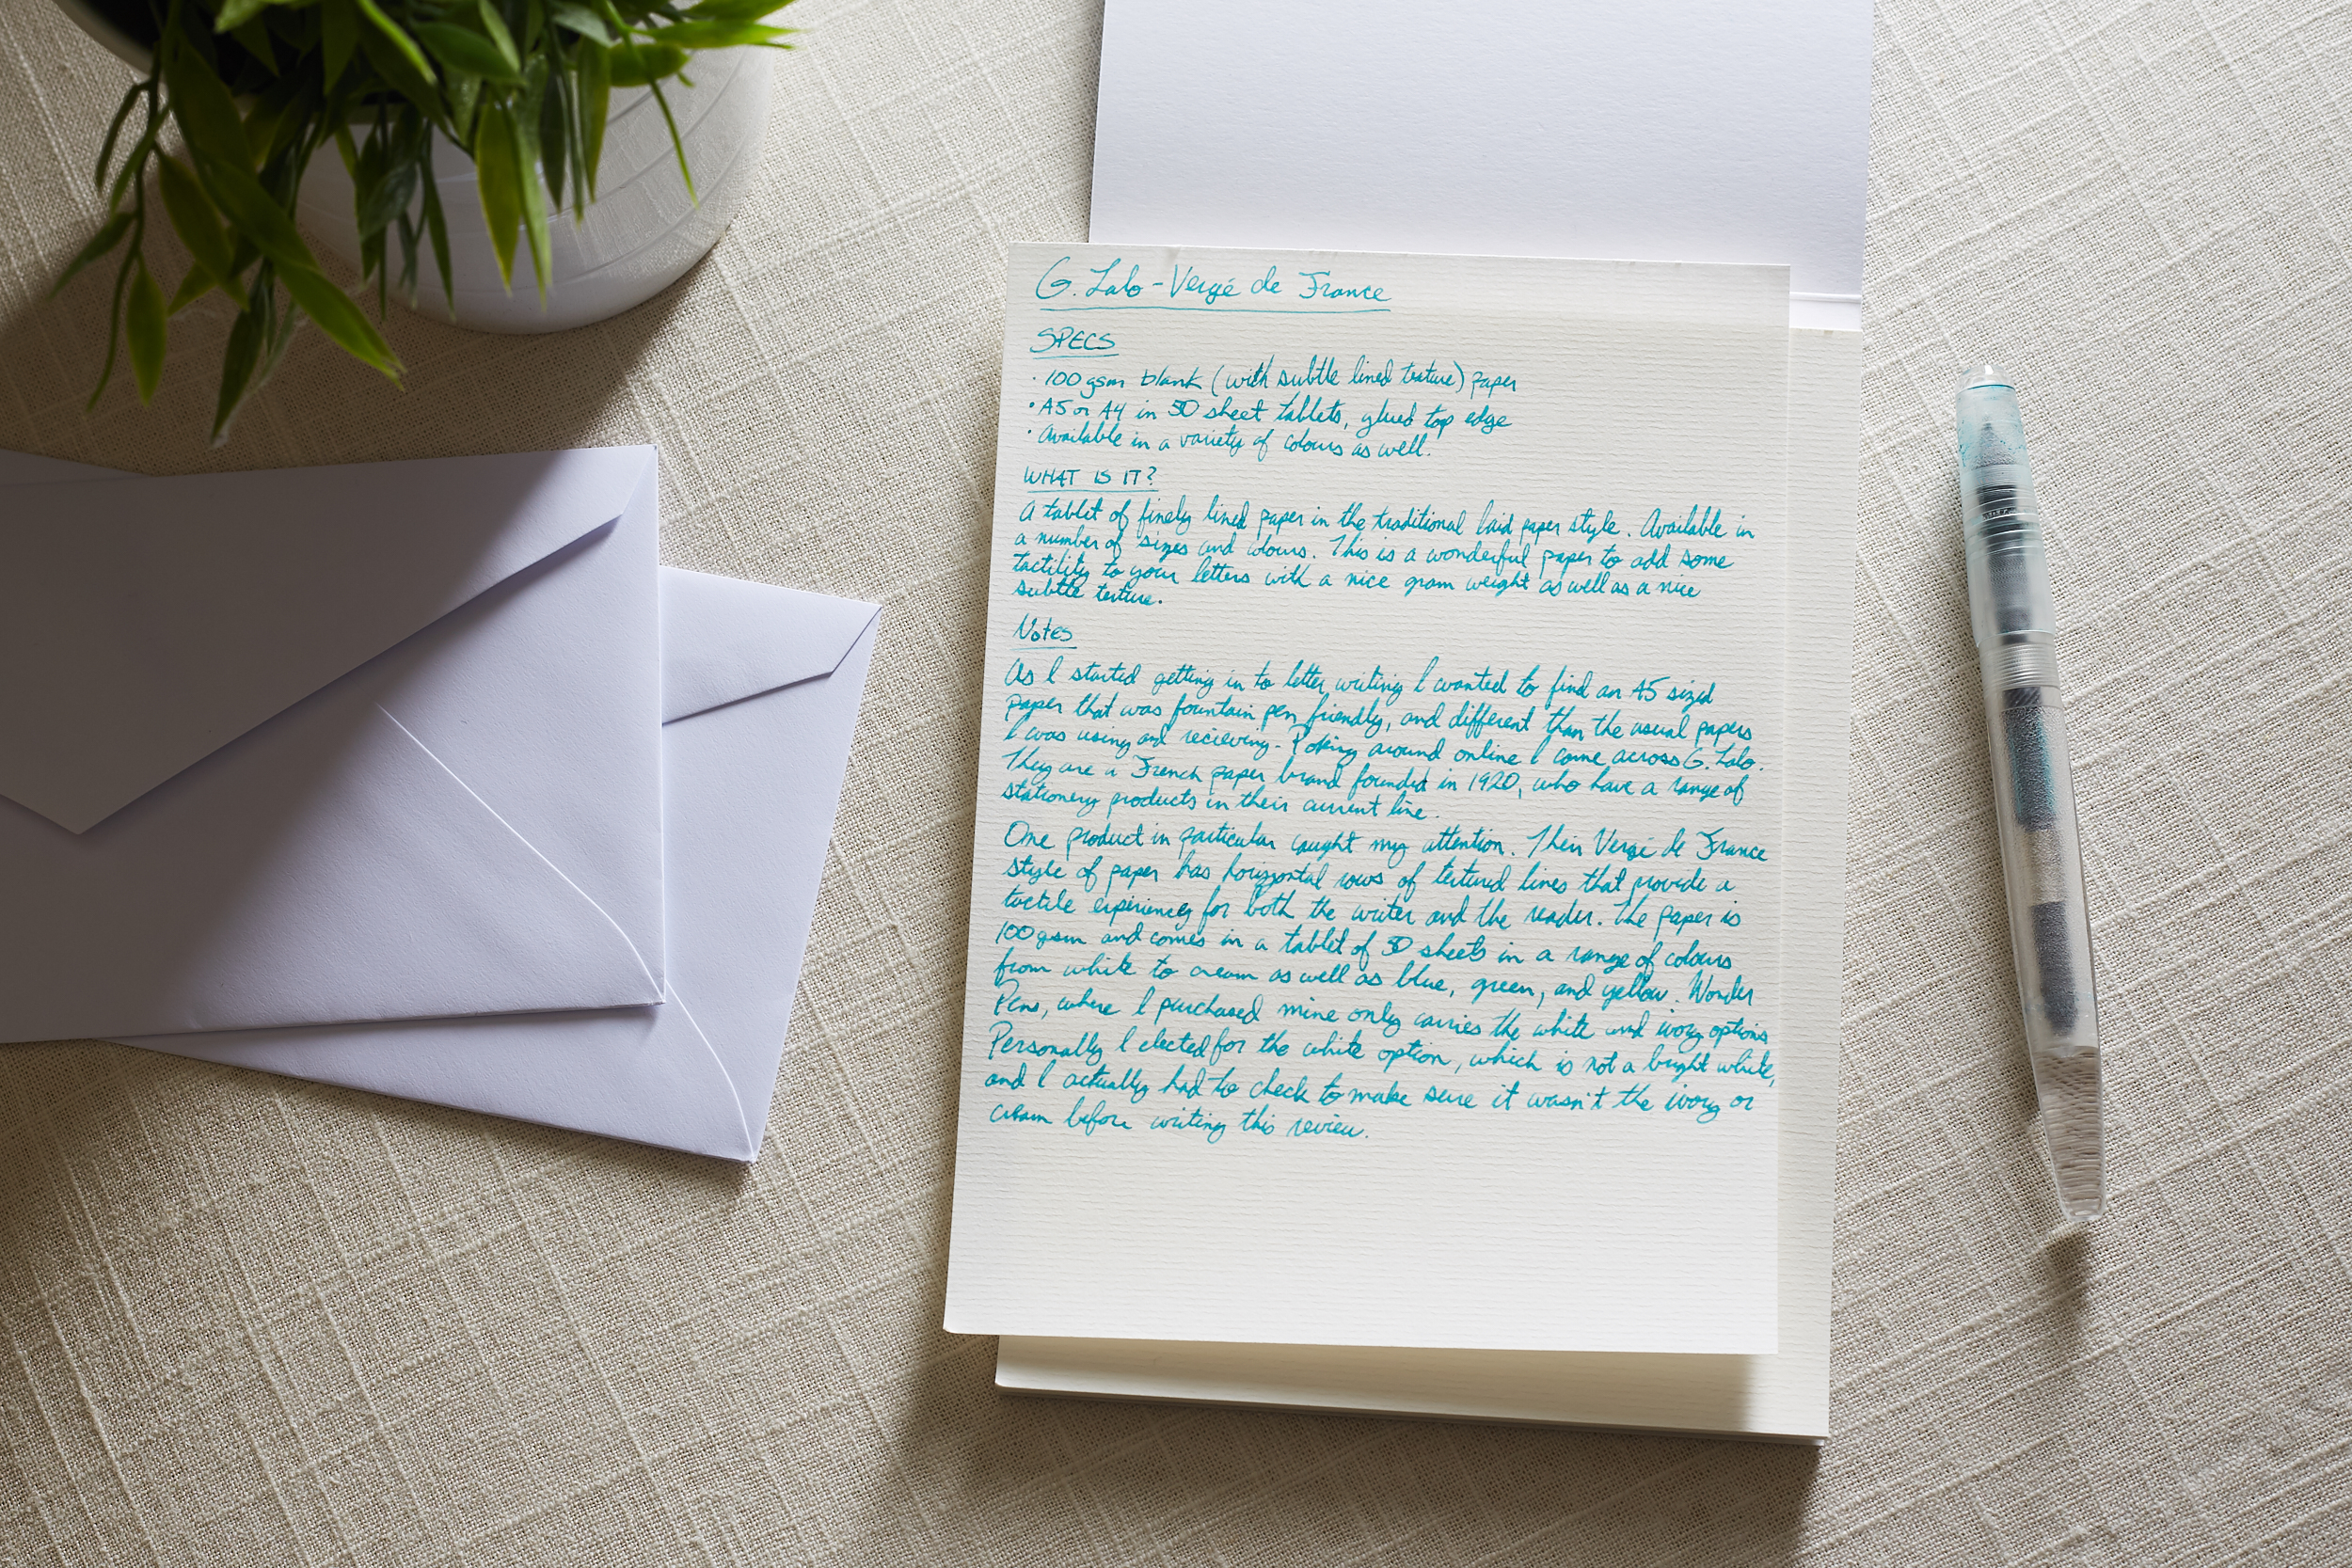 G. Lalo - Vergé de France
SPECS
· 100 gsm blank (with subtle lined texture) paper
· A5 or A4 in 50 sheet tablets, glued top edge
· Available in a variety of colours as well.
WHAT IS IT?
A tablet of finely lined paper in the traditional laid paper style. Available in
a number of sizes and colours. This is a wonderful paper to add some
tactility to your letters with a nice gram weight as well as a nice
subtle texture.
Notes
As I started getting in to letter writing I wanted to find an A5 sized
paper that was fountain pen friendly, and different than the usual papers
I was using and recieving. Poking around online I came across G. Lalo.
They are a French paper brand founded in 1920, who have a range of
stationery products in their current line.
One product in particular caught my attention. Their Vergé de France
style of paper has horizontal rows of textured lines that provide a
tactile experience for both the writer and the reader. The paper is
100 gsm and comes in a tablet of 50 sheets in a range of colours
from white to cream as well as blue, green, and yellow. Wonder
Pens, where I purchased mine only carries the white and ivory options
Personally I elected for the white option, which is not a bright white,
and I actually had to check to make sure it wasn't the ivory or
cream before writing this review.